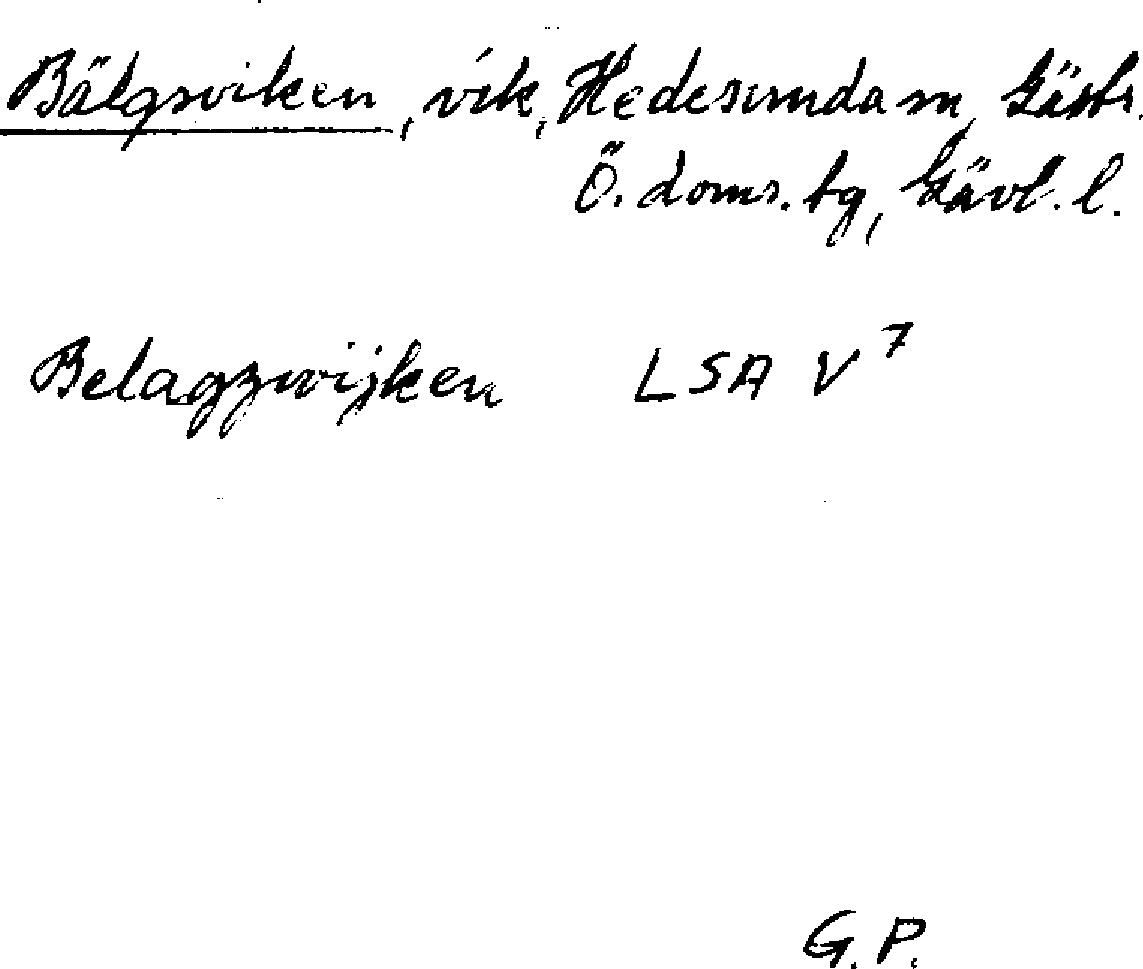 Bälgsviken, vik, Hedesunda sn, Gästr.
Ö. doms. tg, Gävl. l.
Belagzwijken LSA V⁷
G.P.